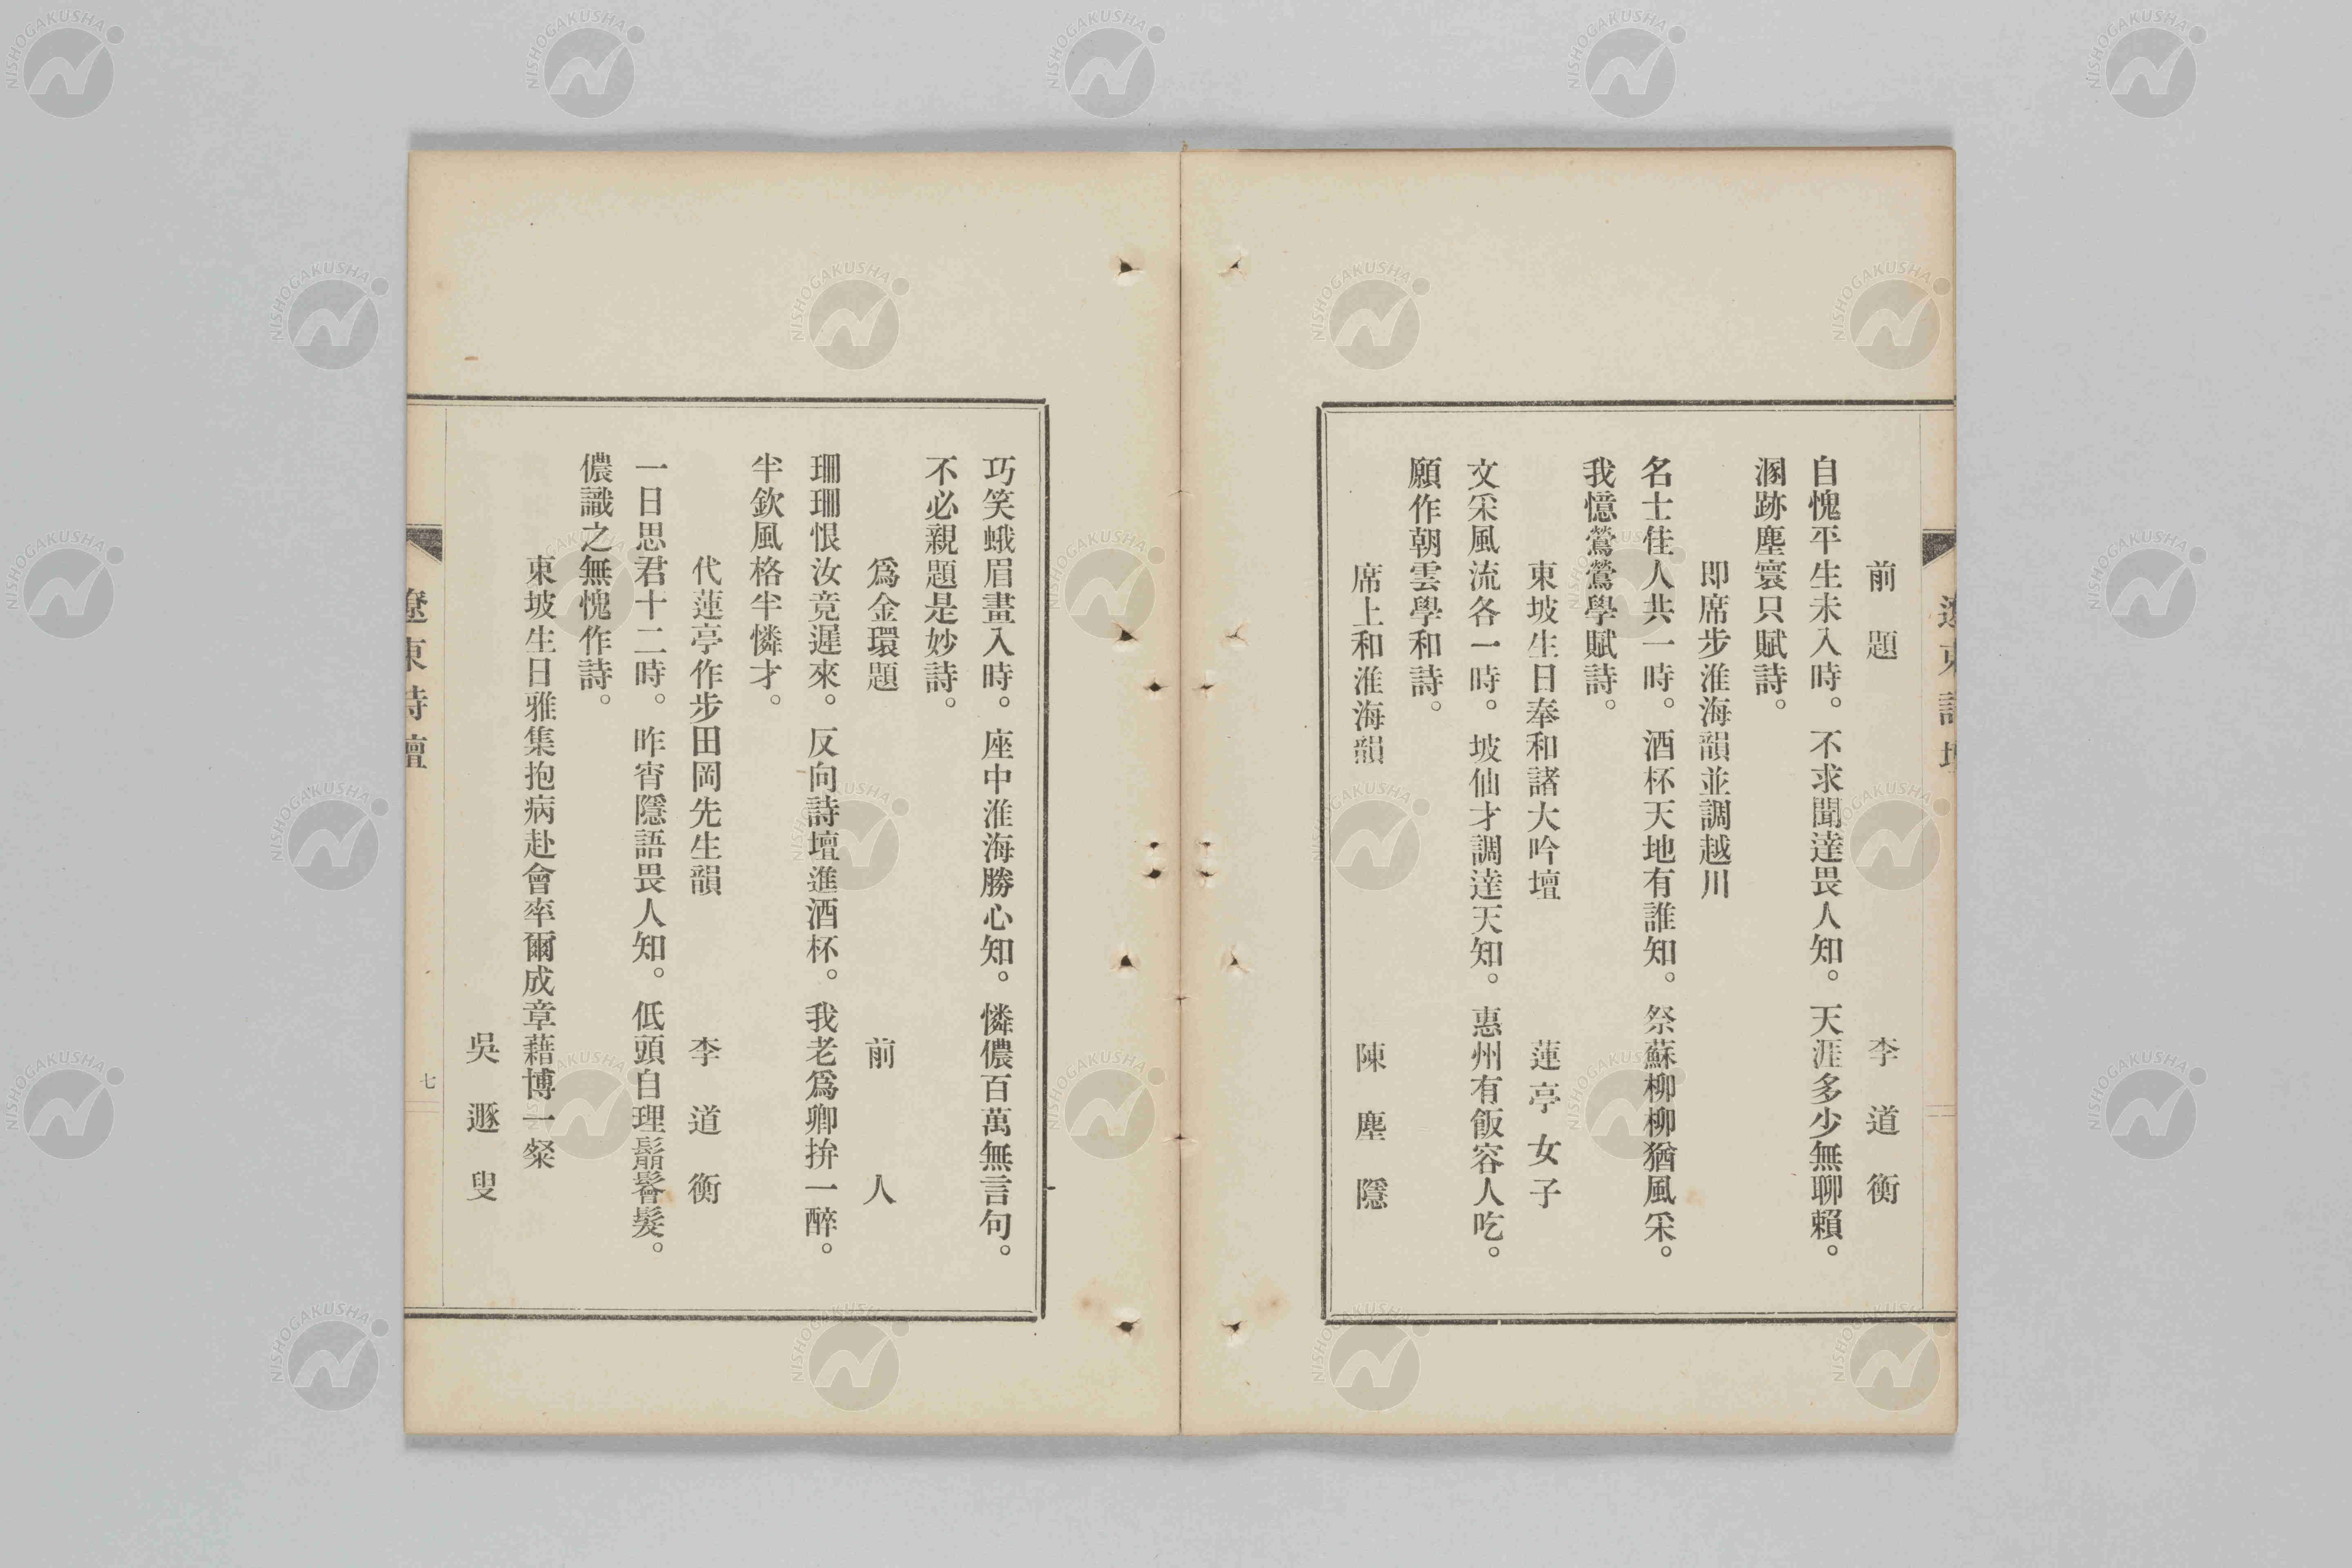 前題　李道衡
自愧平生未入時。不求聞達畏人知。天涯多少無聊賴。
溷跡塵寰只賦詩。
即席步淮海韻並調越川
名士佳人共一時。酒杯天地有誰知。祭蘇柳柳猶風采。
我憶鶯鶯學賦詩。
東坡生日奉和諸大吟壇　蓮亭女子
文采風流各一時。坡仙才調達天知。惠州有飯容人吃。
願作朝雲學和詩。
席上和淮海韻　陳塵隱
巧笑蛾眉畫入時。座中淮海勝心知。憐儂百萬無言句。
不必親題是妙詩。
為金環題　前人
珊珊恨汝竟遲來。反向詩壇進酒杯。我老為卿拚一醉。
半欽風格半憐才。
代蓮亭作步田岡先生韻　李道衡
一日思君十二時。昨宵隱語畏人知。低頭自理鬅鬙髮。
儂識之無愧作詩。
東坡生日雅集抱病赴會率爾成章藉博一粲
吳遯叟
遼東詩壇
七
NISHOGAKUSHA